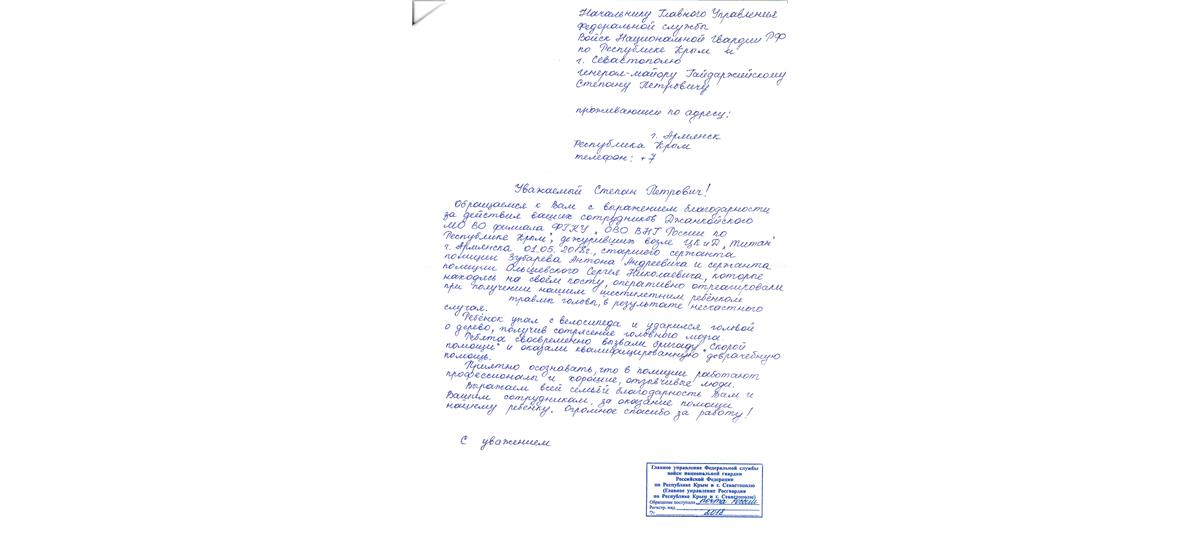 Начальнику Главного Управления
Федеральной службы
Войск Национальной Гвардии РФ
по Республике Крым и
г. Севастополю
генерал-майору Гайдаржийскому
Степану Петровичу
проживающей по адресу:
г. Армянск
Республика Крым
телефон: +7
Уважаемый Степан Петрович!
Обращаемся к Вам с выражением благодарности
за действия ваших сотрудников Джанкойского
МО ВО филиала ФГКУ "ОВО ВНГ России по
Республике Крым", дежуривших возле ЦКиД "Титан"
г. Армянска 01.05.2018г., старшего сержанта
полиции Зубарева Антона Андреевича и сержанта
полиции Ольшевского Сергея Николаевича, которые
находясь на своём посту, оперативно отреагировали
при получении нашим шестилетним ребёнком
травмы головы, в результате несчастного
случая.
Ребёнок упал с велосипеда и ударился головой
о дерево, получив сотрясение головного мозга
Ребята своевременно вызвали бригаду "скорой
помощи" и оказали квалифицированную доврачебную
помощь.
Приятно осознавать, что в полиции работают
профессионалы и хорошие, отзывчивые люди.
Выражаем всей семьёй благодарность Вам и
Вашим сотрудникам за оказание помощи
нашему ребёнку. Огромное спасибо за работу!
С уважением
Главное управление Федеральной службы
войск национальной гвардии
Российской Федерации
по Республике Крым и г. Севастополю
(Главное управление Росгвардии
по Республике Крым и г. Севастополю)
Обращение поступило почта России
Регистр. инд.
2018